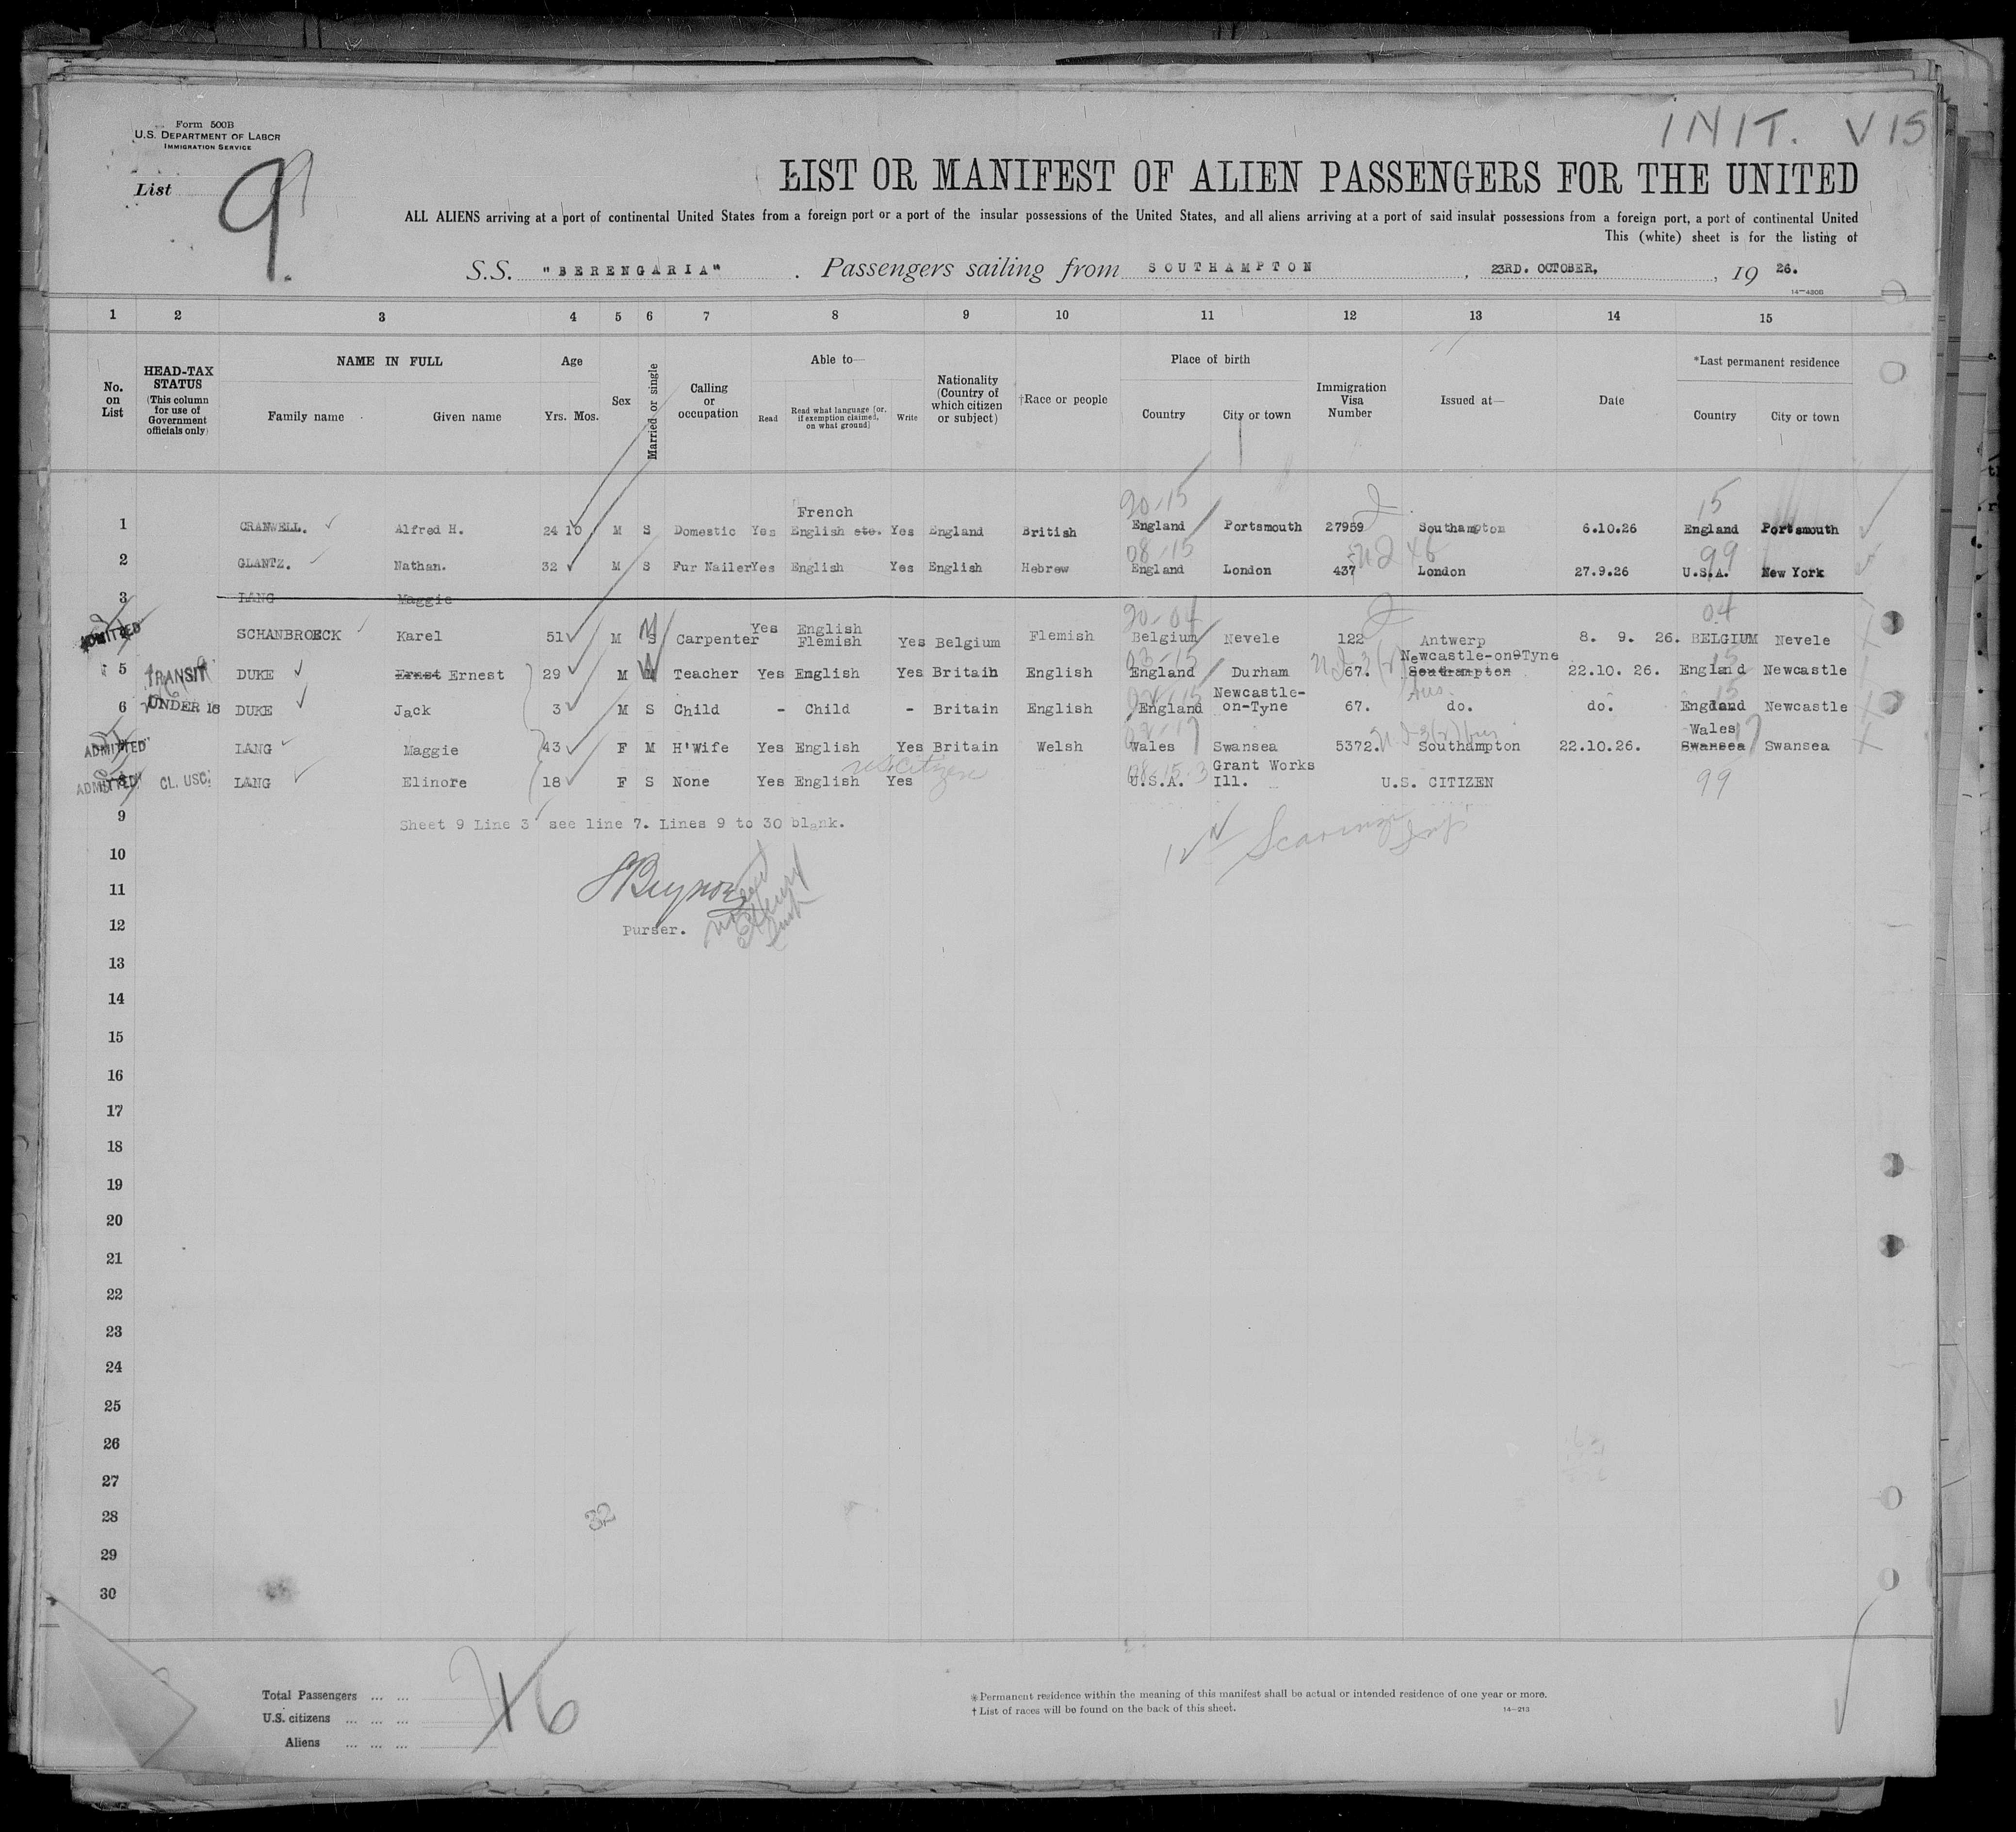 INIT. VIS
Form 500B
U.S. DEPARTMENT OF LABOR
IMMIGRATION SERVICE
List 9
LIST OR MANIFEST OF ALIEN PASSENGERS FOR THE UNITED
ALL ALIENS arriving at a port of continental United States from a foreign port or a port of the insular possessions of the United States, and all aliens arriving at a port of said insular possessions from a foreign port, a port of continental United
This (white) sheet is for the listing of
S.S. "BERENGARIA" . Passengers sailing from SOUTHAMPTON , 23RD. OCTOBER, , 19 26.
14—430B
1 2 3 4 5 6 7 8 9 10 11 12 13 14 15
No. on List
HEAD-TAX STATUS (This column for use of Government officials only)
NAME IN FULL
Family name Given name
Age
Yrs. Mos.
Sex
Married or single
Calling or occupation
Able to—
Read
Read what language [or, if exemption claimed, on what ground]
Write
Nationality (Country of which citizen or subject)
†Race or people
Place of birth
Country City or town
Immigration Visa Number
Issued at—
Date
*Last permanent residence
Country City or town
20-15 2 15
French
1 CRANWELL. Alfred H. 24 10 M S Domestic Yes English etc. Yes England British England Portsmouth 27959 Southampton 6.10.26 England Portsmouth
08-15 99
2 GLANTZ. Nathan. 32 M S Fur Nailer Yes English Yes English Hebrew England London 437 London 27.9.26 U.S.A. New York
3 LANG Maggie
20-04 2 04
ADMITTED SCHANBROECK Karel 51 M S Carpenter Yes English Flemish Yes Belgium Flemish Belgium Nevele 122 Antwerp 8. 9. 26. BELGIUM Nevele
03-15 15
Newcastle-on-Tyne
5 TRANSIT DUKE Ernest Ernest 29 M M Teacher Yes English Yes Britain English England Durham 67. Southampton 22.10. 26. England Newcastle
6 UNDER 18 DUKE Jack 3 M S Child - Child - Britain English England Newcastle-on-Tyne 67. do. do. England Newcastle
Wales
ADMITTED LANG Maggie 43 F M H'Wife Yes English Yes Britain Welsh Wales Swansea 5372. Southampton 22.10.26. Swansea Swansea
US citizen
ADMITTED CL. USC. LANG Elinore 18 F S None Yes English Yes U.S.A. Grant Works Ill. U.S. CITIZEN 99
9
Sheet 9 Line 3 see line 7. Lines 9 to 30 blank.
10
11
12
Purser.
13
14
15
16
17
18
19
20
21
22
23
24
25
26
27
28
32
29
30
Total Passengers ... ...
U.S. citizens ... ... ...
Aliens ... ... ...
6
* Permanent residence within the meaning of this manifest shall be actual or intended residence of one year or more.
† List of races will be found on the back of this sheet.
14—213